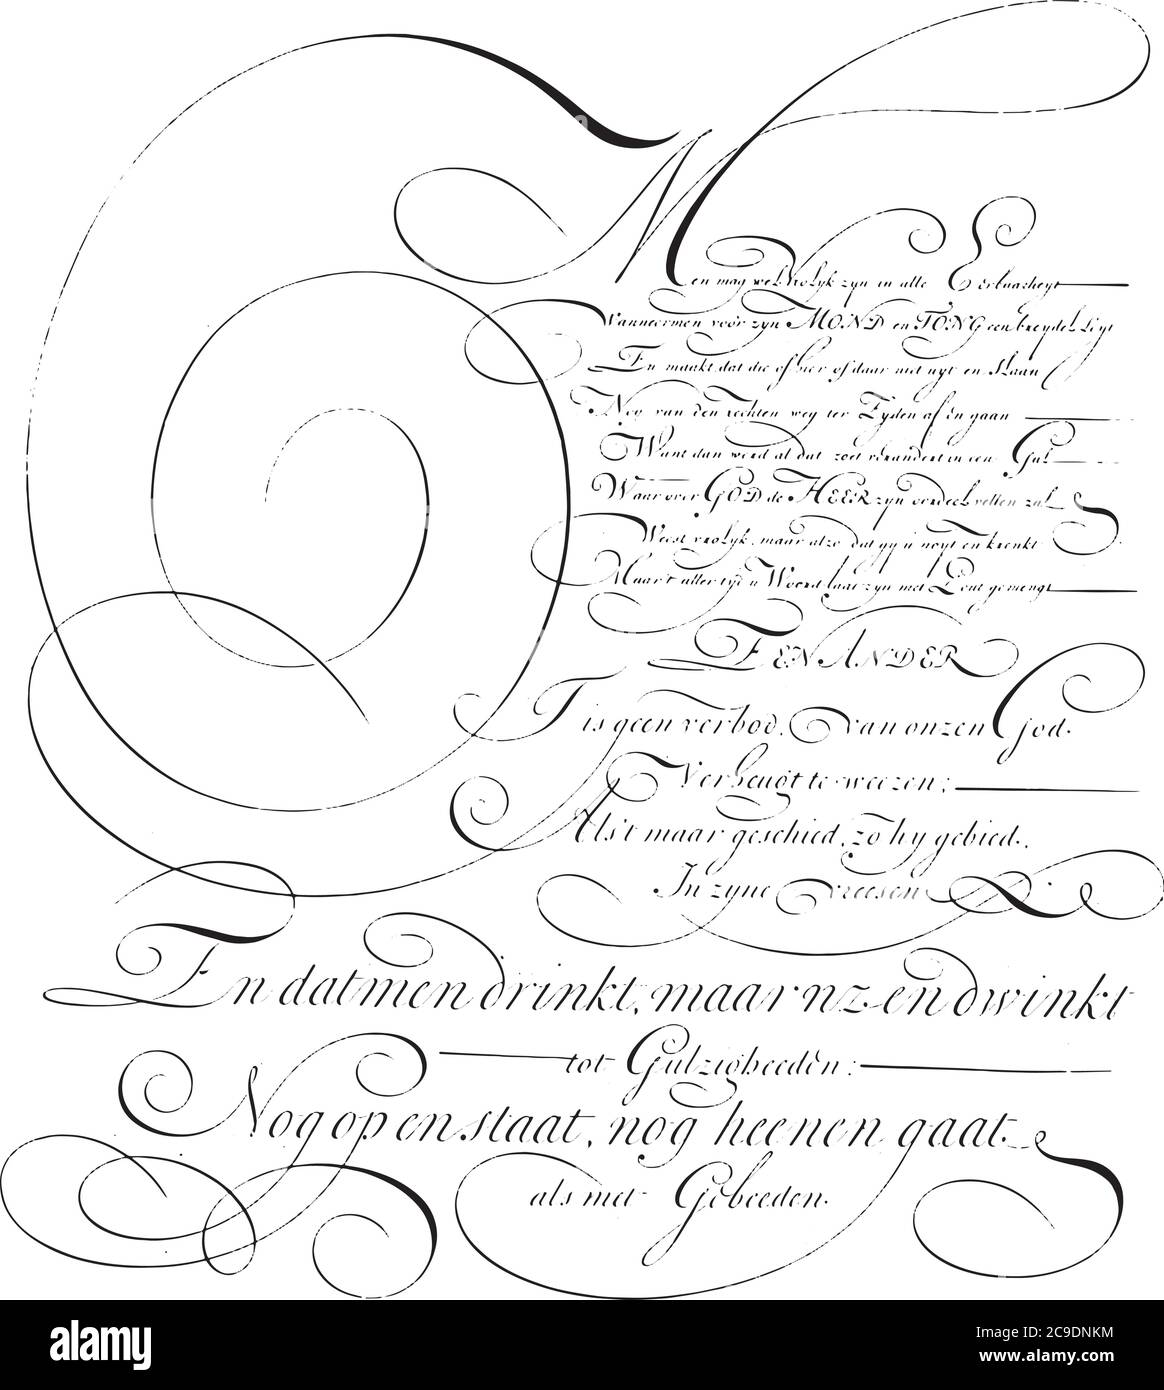 Men mag wel Vrolyk zyn in alle Eerbaarheyt
Wanneermen voor zyn MOND en TONG een breydel leyt
En maakt dat die of hier of daar niet uyt en slaan
Nog van den rechten weg ter Zyden af en gaan
Want dan werd al dat zoet verandert in een Gal
Waar over GOD de HEER zyn oordeel vellen zal
Weest vrolyk, maar alzo dat gy u noyt en krenkt
Maar t' aller tyd u Woord laat zyn met Zout gemengt
EEN ANDER
T is geen verbod, van onzen God.
Verheugt te weezen;
Als't maar geschied, zo hy gebied.
In zyne vreesen
En dat men drinkt, maar nz en dwinkt
tot Gulzigheeden:
Nog op en staat, nog heenen gaat.
als met Gebeeden.
alamy
Image ID: 2C9DNKM
www.alamy.com